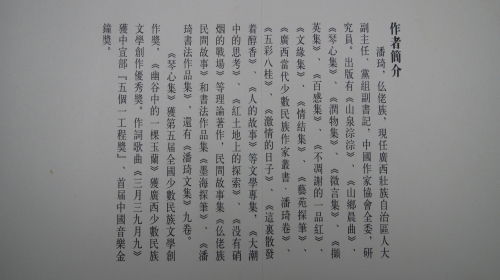 作者簡介
潘琦，仫佬族，現任廣西壯族自治區人大
副主任、黨組副書記，中國作家協會全委，研
究員。出版有《山泉淙淙》、《山鄉晨曲》、
《琴心集》、《潤物集》、《微言集》、《擷
英集》、《百感集》、《不凋謝的一品紅》、
《文緣集》、《情結集》、《藝苑探筆》、
《廣西當代少數民族作家叢書·潘琦卷》、
《五彩八桂》、《激情的日子》、《這裏散發
着醇香》、《人的故事》等文學專集，《大潮
中的思考》、《紅土地上的探索》、《没有硝
烟的戰場》等理論著作，民間故事集《仫佬族
民間故事》和書法作品集《墨海探筆》、《潘
琦書法作品集》，還有《潘琦文集》九卷。
《琴心集》獲第五届全國少數民族文學創
作獎，《幽谷中的一棵玉蘭》獲廣西少數民族
文學創作優秀獎。作詞歌曲《三月三九月九》
獲中宣部『五個一工程獎』、首届中國音樂金
鐘獎。